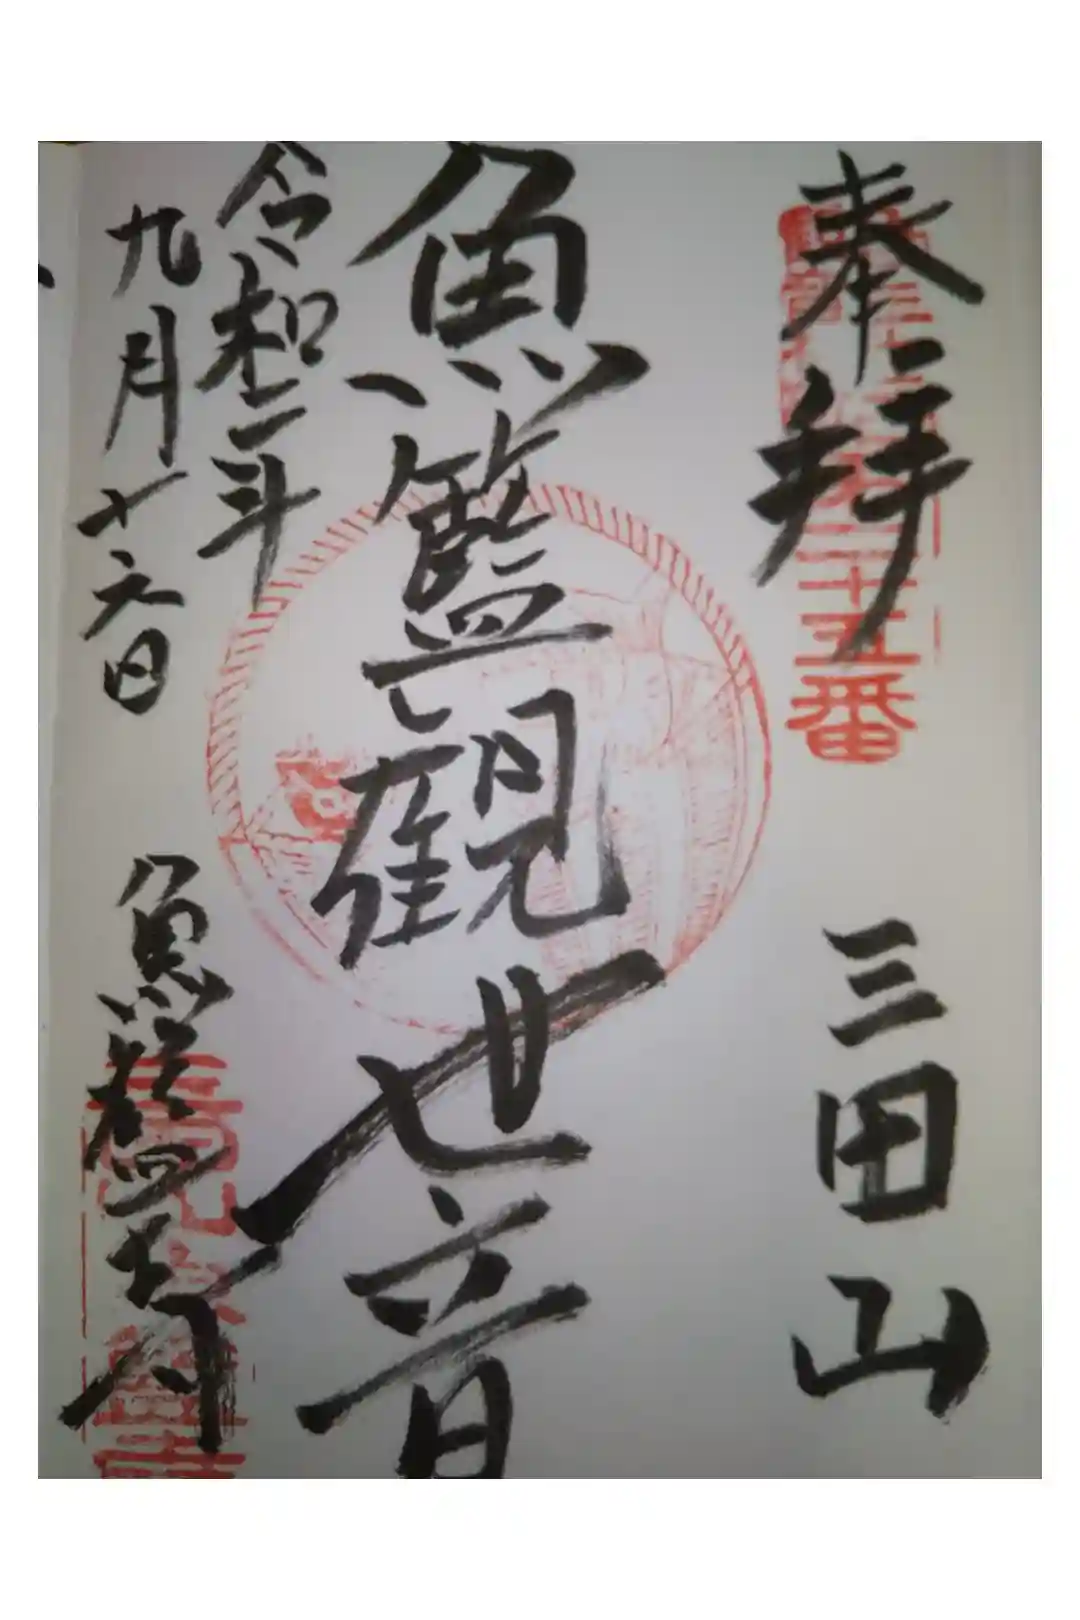 奉拝
三田山
二十五番
魚籃觀世音
令和二年
九月十六日
魚籃寺